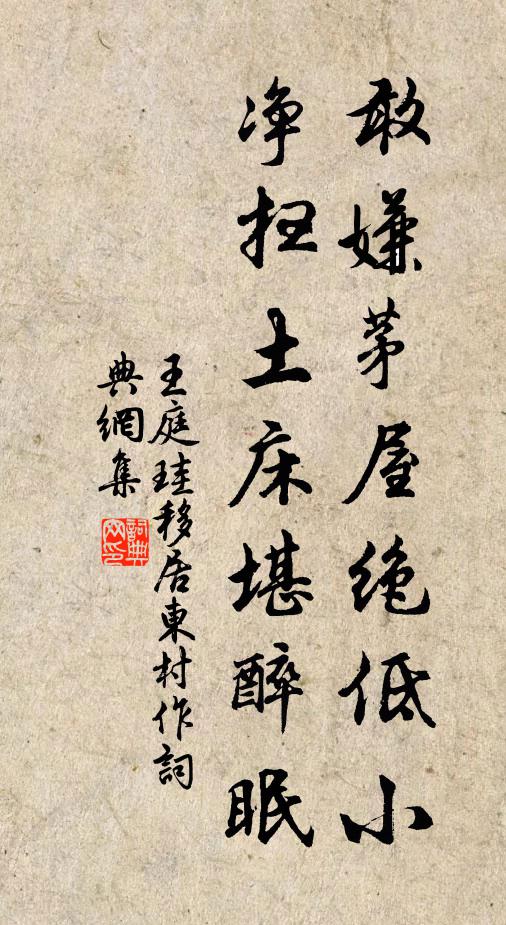 敢嫌茅屋绝低小
净扫土床堪醉眠
王庭珪移居東村作詞
典網集
詞典
网印